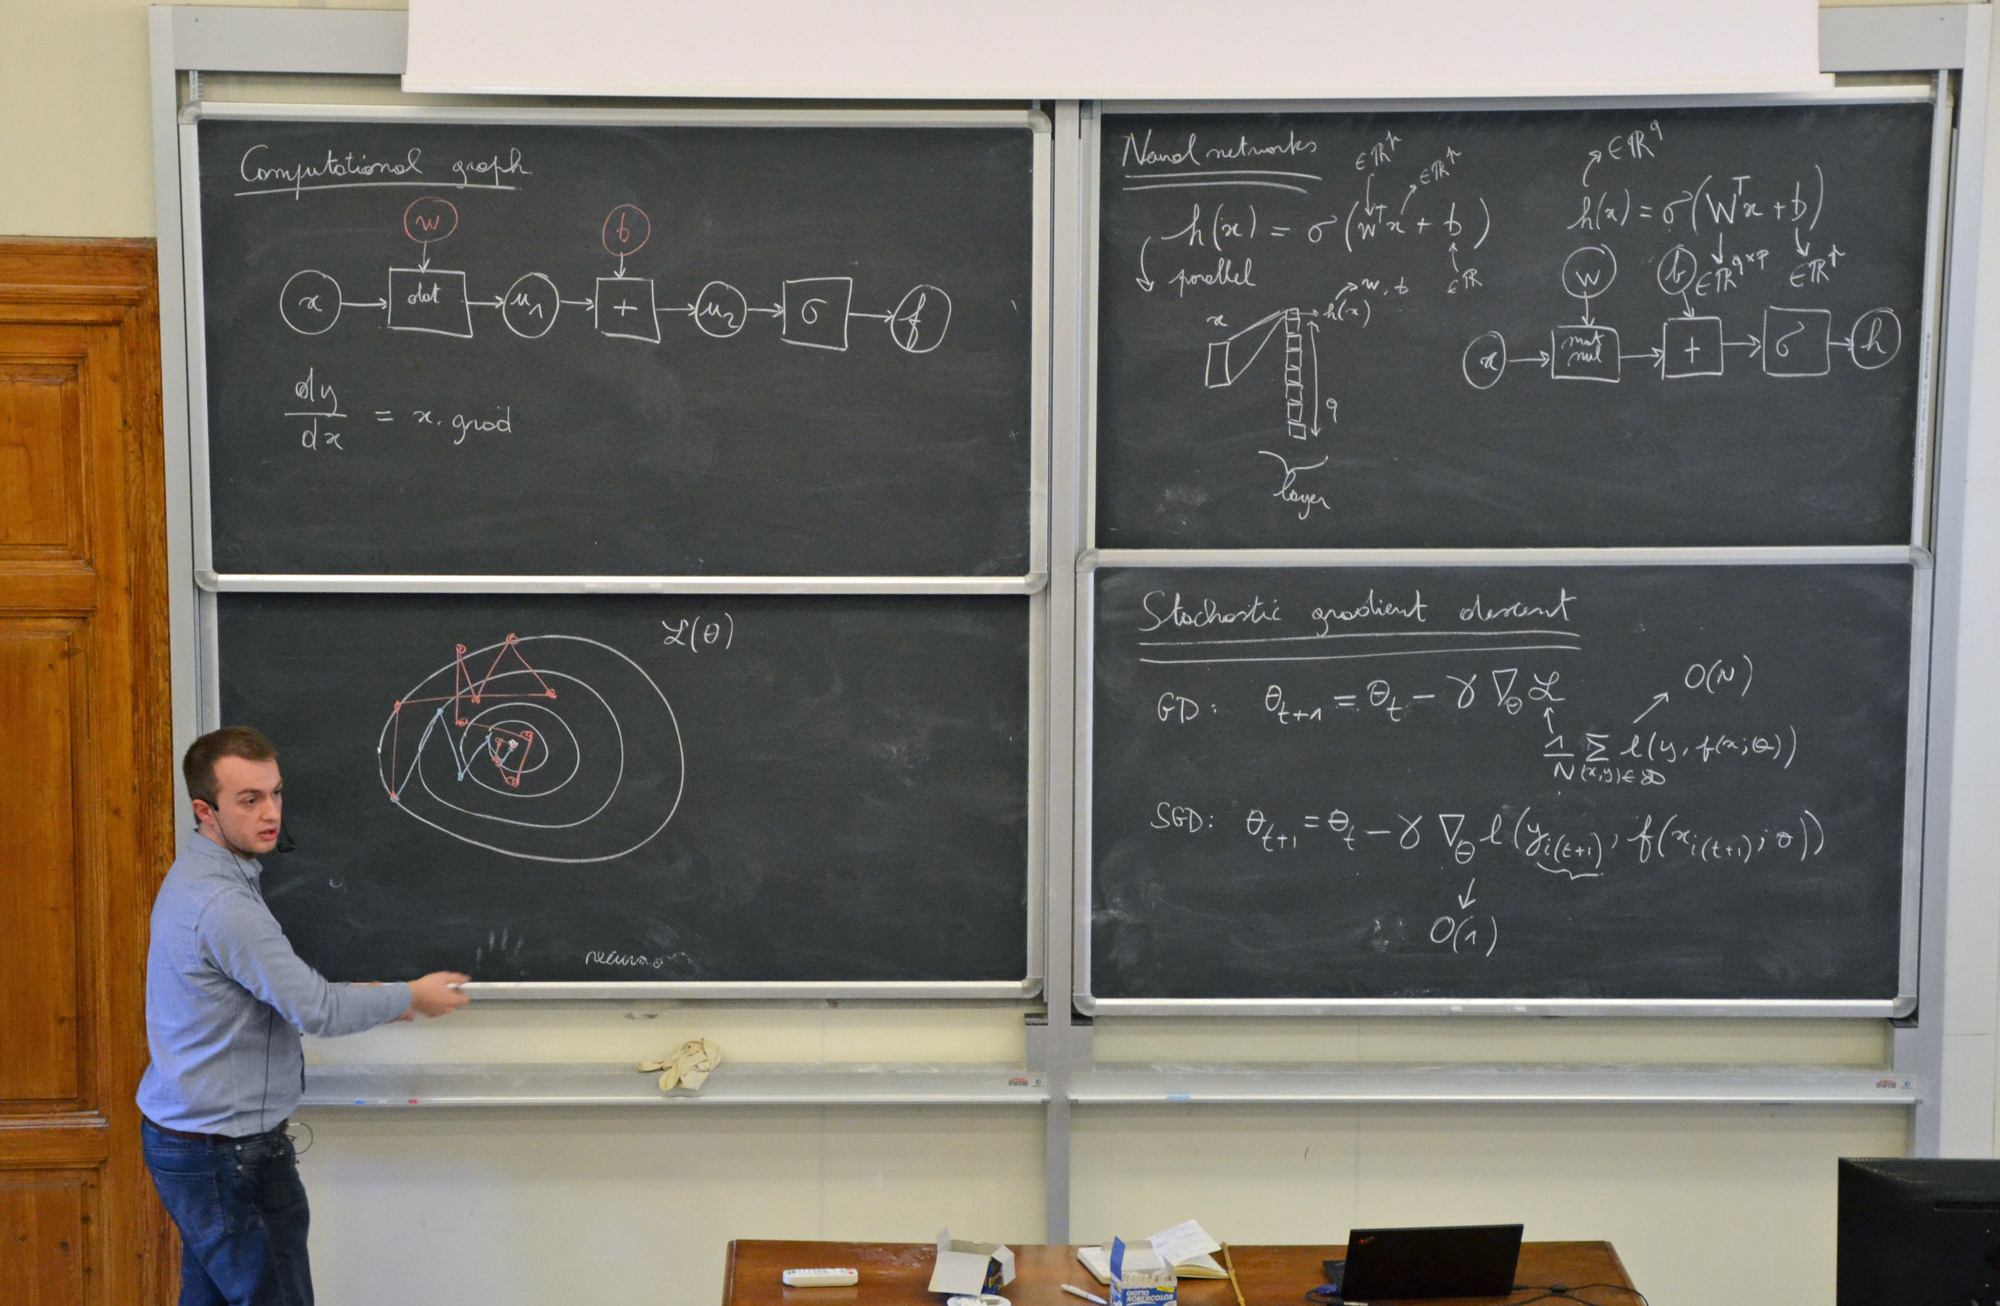 Computational graph
w b
x dot u₁ + u₂ σ f
dy/dx = x. grad
L(θ)
Neural networks
∈ℝᵖ ∈ℝᵖ
h(x) = σ(wᵀx + b)
∈ℝ
parallel
x h(x) w, b
q
layer
∈ℝ^q
h(x) = σ(Wᵀx + b)
w b ∈ℝ^(q×p) ∈ℝᵖ
x mat mul + σ h
Stochastic gradient descent
GD: θ_{t+1} = θ_t − γ ∇_θ L
O(N)
1/N Σ_{(x,y)∈D} l(y, f(x;θ))
SGD: θ_{t+1} = θ_t − γ ∇_θ l(y_{i(t+1)}, f(x_{i(t+1)}; θ))
O(1)
GIOTTO
ROBERCOLOR